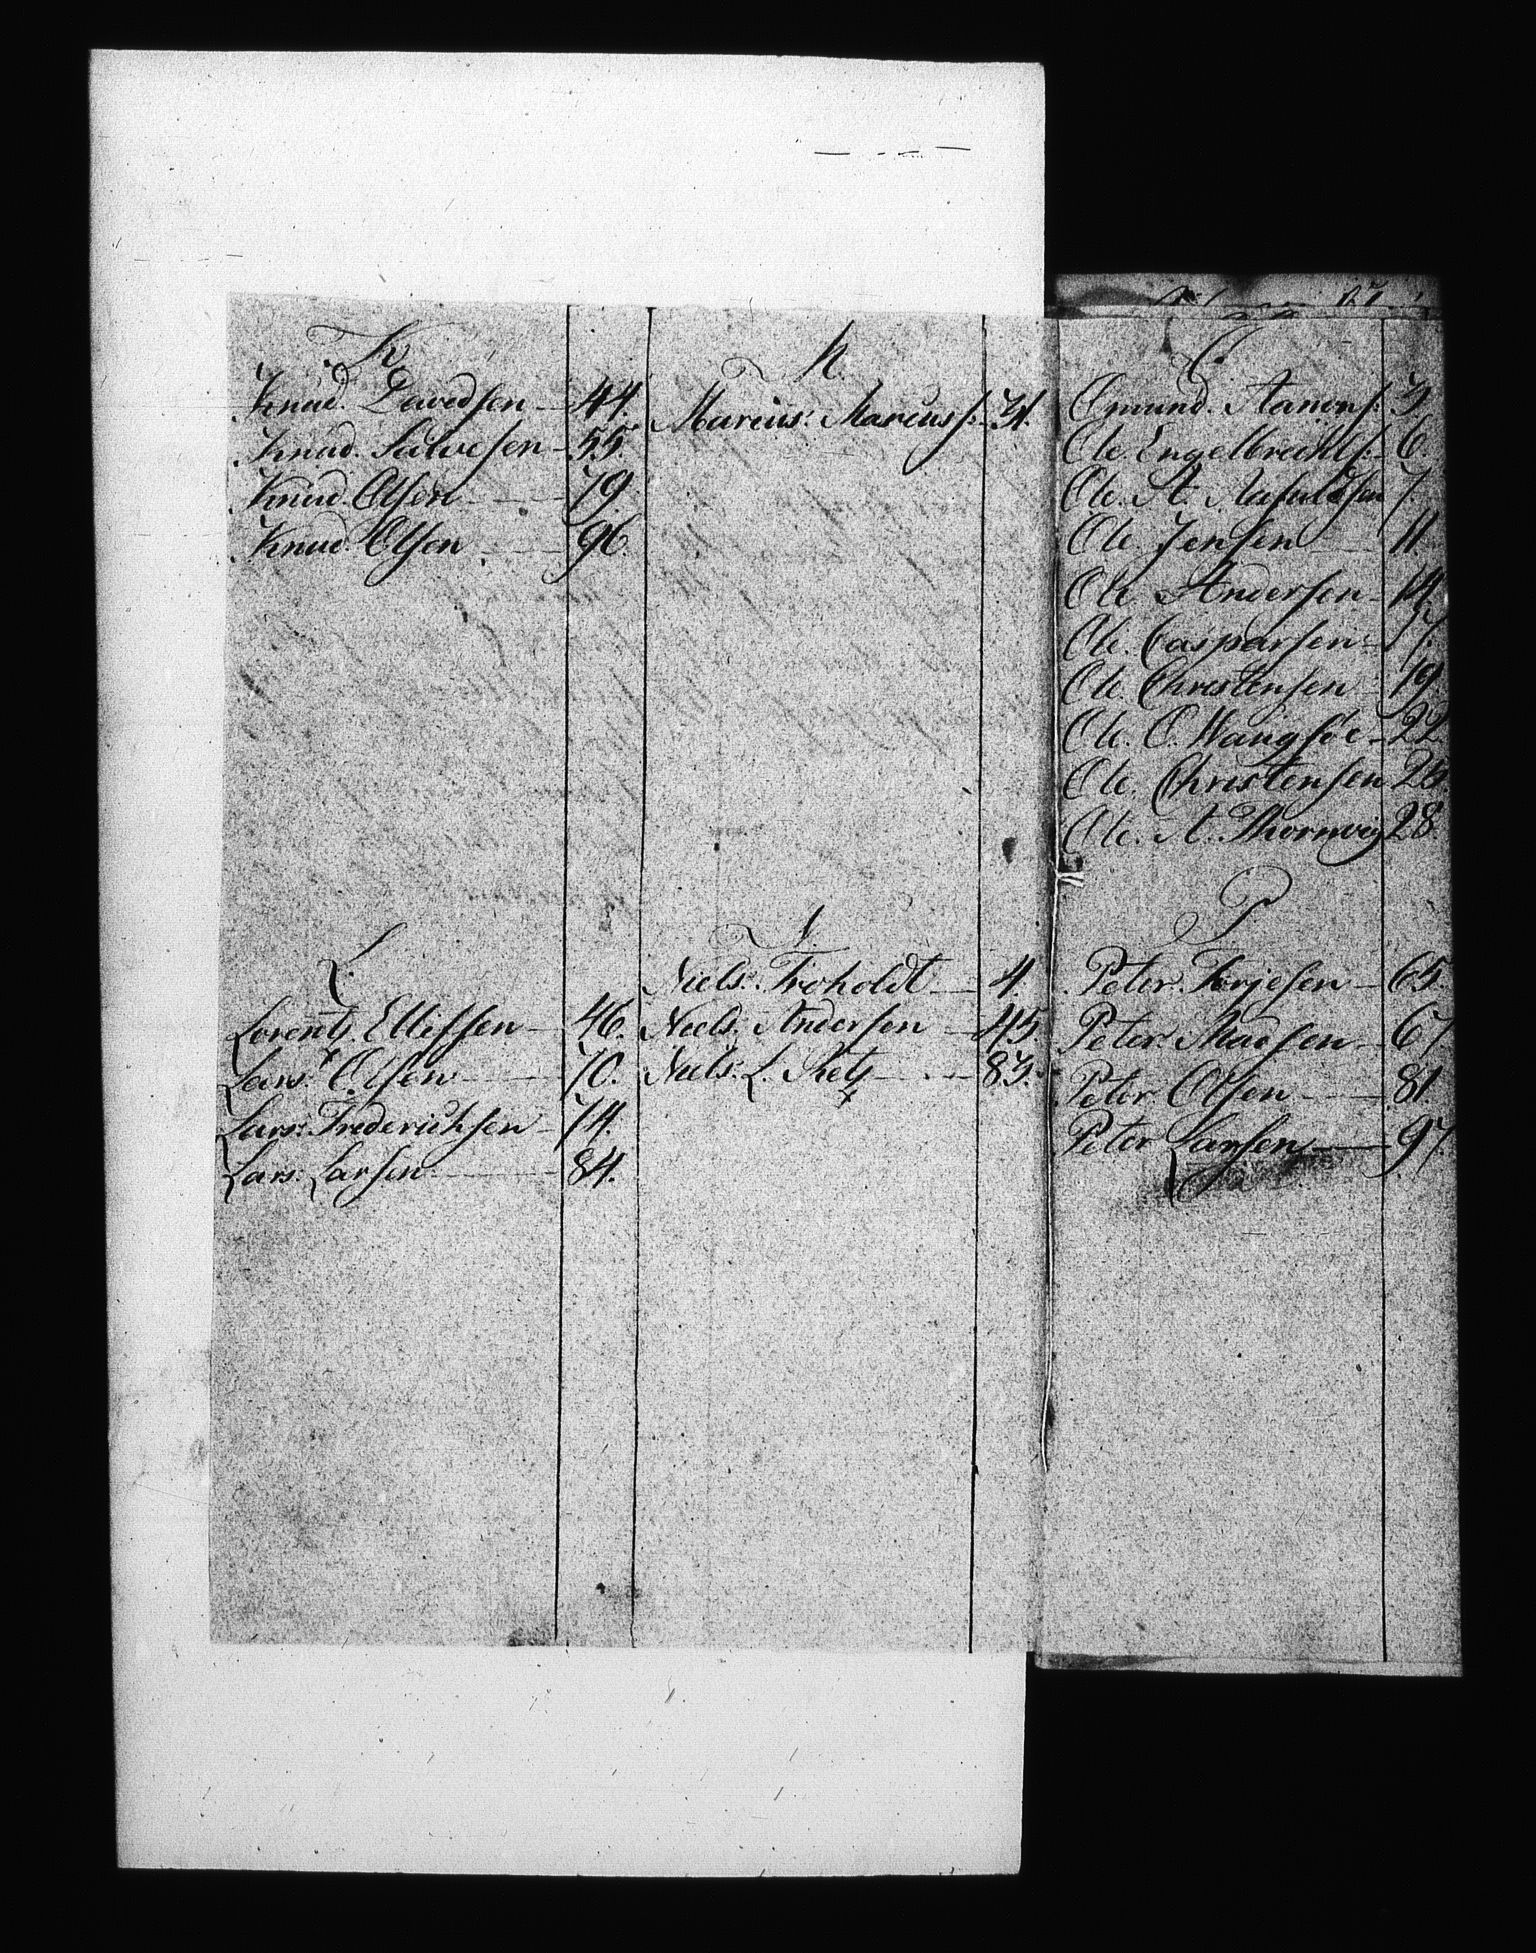 K.
Knud. Davedsen 44.
Knud. Salvesen 55.
Knud. Olsen 79.
Knud. Olsen 96.
L.
Lorentz. Ellifsen 46.
Lars. Olsen 70.
Lars. Frederichsen 74.
Lars. Larsen 84.
M.
Marcus. Marcusf: 31.
N.
Niels. Froholdt 4.
Niels. Andersen 45.
Niels. L. 83.
O.
Omund. Aanonf: 3.
Ole. Engelbrechtf: 6.
Ole. A. 7.
Ole. Jensen 11.
Ole. Andersen 14.
Ole. Caspersen 17.
Ole. Christensen 19.
Ole. O. Wangsöe 22.
Ole. Christensen 25.
Ole. A. Thornvig 28
P
Peter. Torjesen 65.
Peter. Madsen 67
Peter Olsen 81.
Peter Larsen 97.